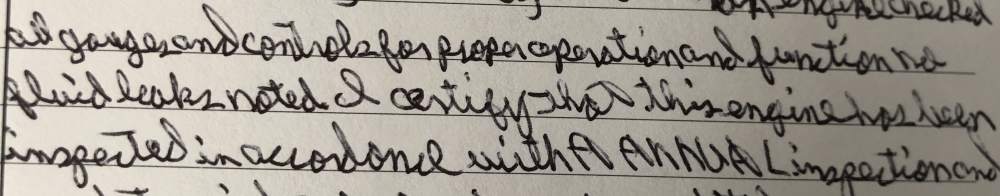 engine checked
all gauges and controls for proper operation and function no
fluid leaks noted I certify that this engine has been
inspected in accordance with A ANNUAL inspection and